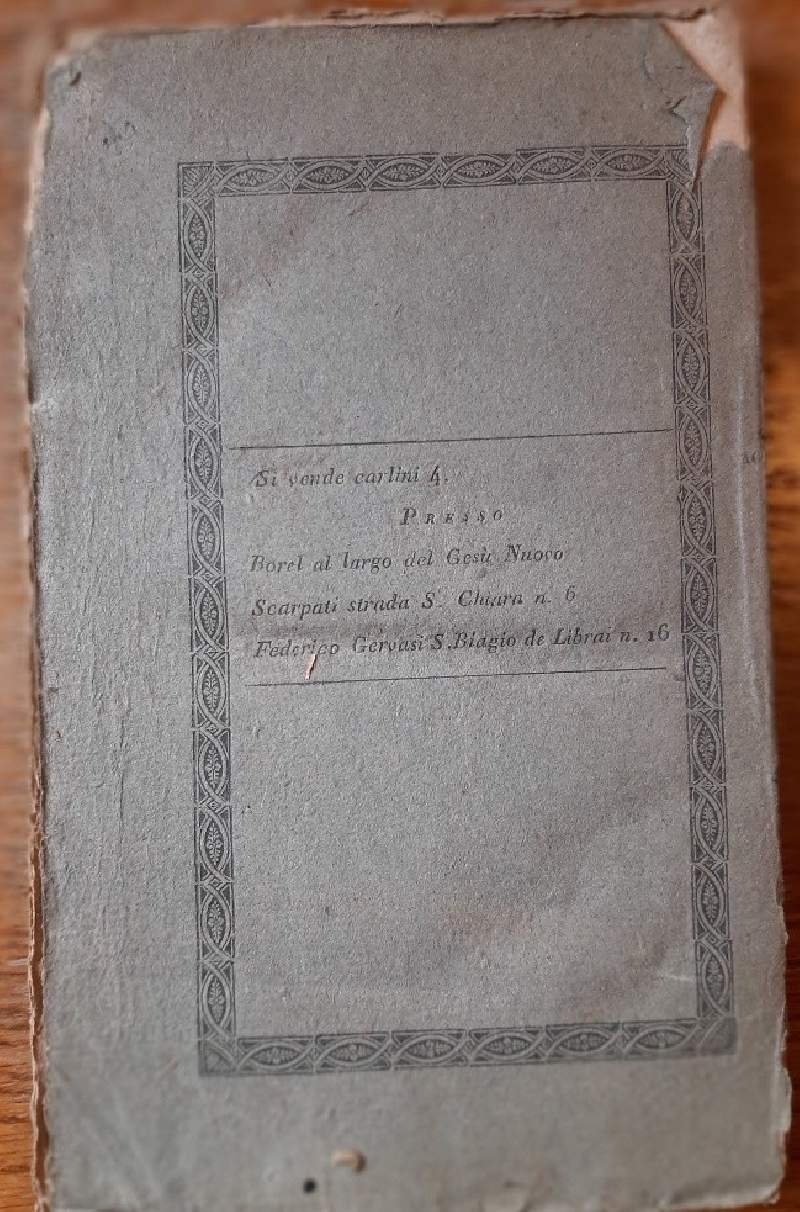 Si vende carlini 4.
PRESSO
Borel al largo del Gesù Nuovo
Scarpati strada S. Chiara n. 6
Federico Gervasi S.Biagio de Librai n. 16